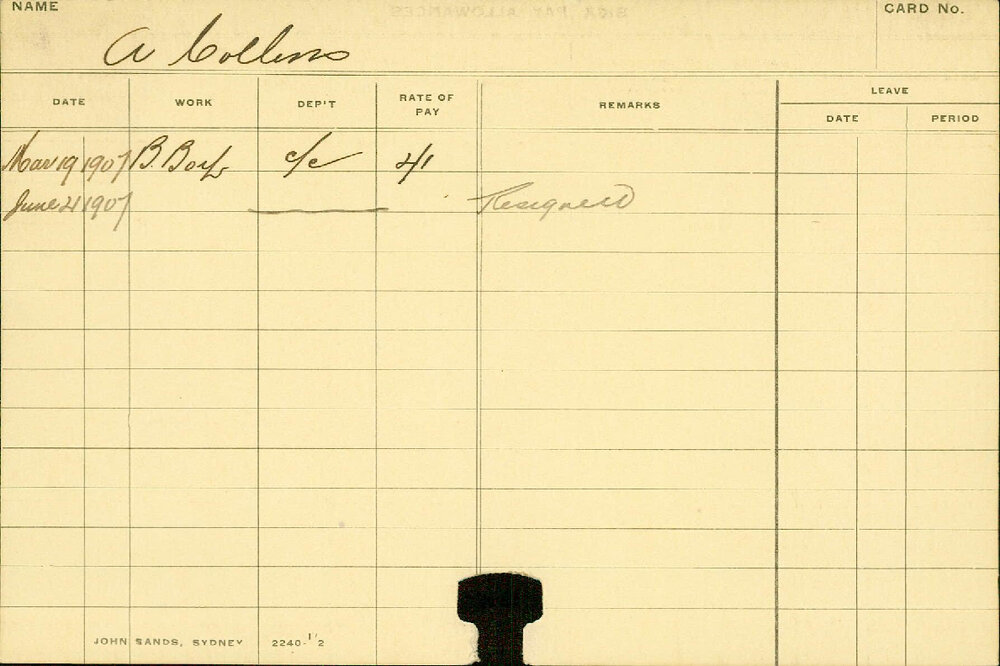 NAME
CARD No.
A Collins
DATE WORK DEP'T RATE OF PAY REMARKS LEAVE
DATE PERIOD
Mar 19 1907 B. Boy c/c 4/
June 21 1907 Resigned
JOHN SANDS, SYDNEY 2240-1/2